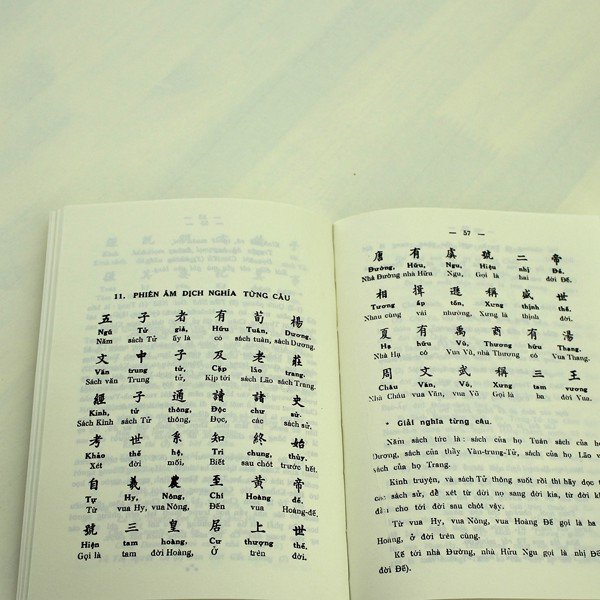 11. PHIÊN ÂM DỊCH NGHĨA TỪNG CÂU
五 子 者 有 荀 楊
Ngũ Tử giả, Hữu Tuân, Dương.
Năm sách Tử ấy là có sách tuân, sách Dương.
文 中 子 及 老 莊
Văn trung tử, Cập lão trang.
Sách văn Trung tử, Kịp tới sách Lão sách Trang.
經 子 通 讀 諸 史
Kinh, tử thông, Độc chư sử.
Sách Kinh sách Tử thông, Đọc, các sách sử,
考 世 系 知 終 始
Khảo thế hệ, Tri chung, thủy.
Xét đời mối, Biết sau chót trước hết,
自 羲 農 至 黃 帝
Tự Hy, Nông, Chí Hoàng đế.
Từ vua Hy, vua Nông, Đến vua Hoàng-đế,
號 三 皇 居 上 世
Hiện tam hoàng, Cư thượng thế.
Gọi là tam đời Hoàng, Ở trên đời.
— 57 —
唐 有 虞 號 二 帝
Đường, Hữu, Ngu, Hiệu nhị Đế.
Nhà Đường nhà Hữu Ngu, Gọi là hai đời Đế.
相 揖 遜 稱 盛 世
Tương ấp tốn, Xưng thịnh thế.
Nhau cùng vái nhường, Xưng là thịnh đời.
夏 有 禹 商 有 湯
Hạ hữu Vũ, Thương hữu Thang.
Nhà Hạ có Vua Vũ, nhà Thương có Vua Thang.
周 文 武 稱 三 王
Châu Văn, Võ, Xưng tam vương
Nhà Châu vua Văn, Võ Gọi là ba đời Vua.
* Giải nghĩa từng câu.
Năm sách tức là : sách của họ Tuân sách của họ
Dương, sách của thầy Văn-trung-Tử, sách của họ Lão v
sách của họ Trang.
Kinh truyện, và sách Tử thông suốt rồi thì hãy đọc t
các sách sử, để xét từ đời nọ sang đời kia, từ đời k
cho tới đời sau chót vậy.
Từ vua Hy, vua Nông, vua Hoàng Đế gọi là ba
Hoàng, ở đời trên cùng.
Kế tới nhà Đường, nhà Hữu Ngu gọi là nhị Đế
đời Đế).